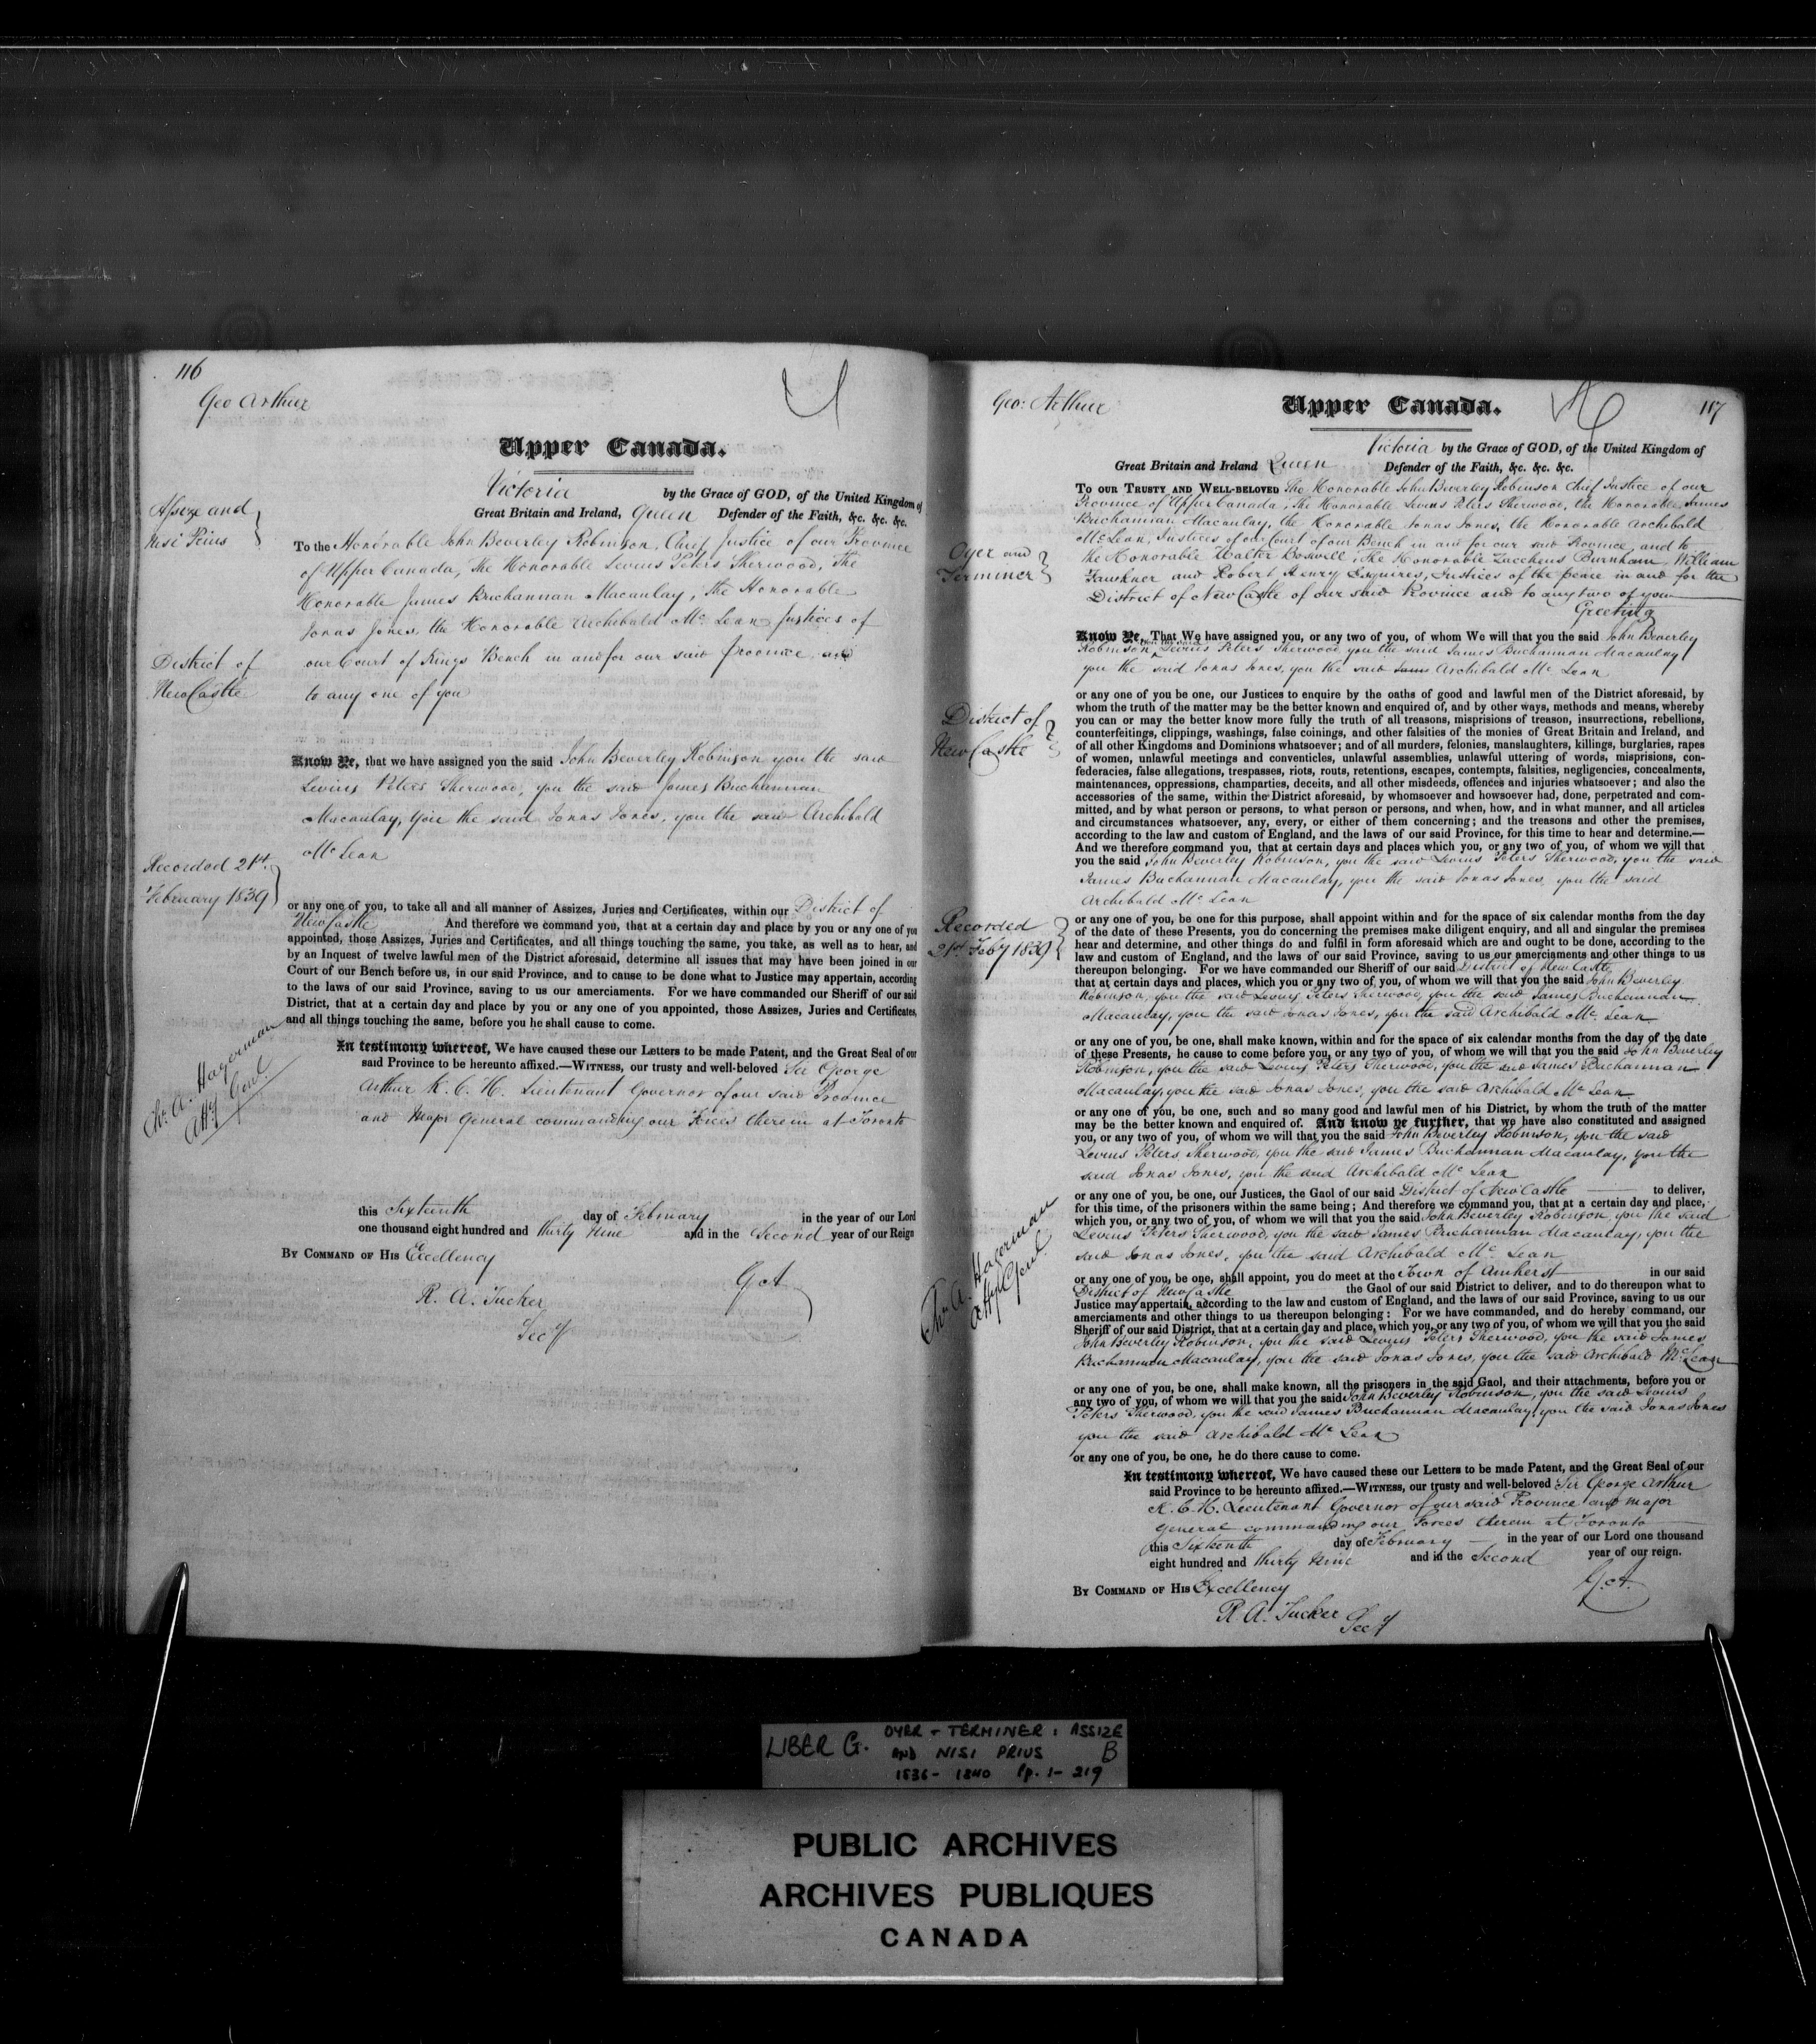 116
Geo Arthur
Upper Canada.
Victoria by the Grace of GOD, of the United Kingdom of
Great Britain and Ireland, Queen Defender of the Faith, &c. &c. &c.
Assize and
Nisi Prius
To the Honorable John Beverley Robinson, Chief Justice of our Province
of Upper Canada, The Honorable Levius Peters Sherwood, The
Honorable James Buchannan Macaulay, the Honorable
Jonas Jones, the Honorable Archibald Mc Lean Justices of
our Court of Kings Bench in and for our said Province, and
to any one of you
District of
NewCastle
Know Ye, that we have assigned you the said John Beverley Robinson you the said
Levius Peters Sherwood, you the said James Buchannan
Macaulay, you the said Jonas Jones, you the said Archibald
Mc Lean
Recorded 21st
February 1839
or any one of you, to take all and all manner of Assizes, Juries and Certificates, within our District of
NewCastle And therefore we command you, that at a certain day and place by you or any one of you
appointed, those Assizes, Juries and Certificates, and all things touching the same, you take, as well as to hear, and
by an Inquest of twelve lawful men of the District aforesaid, determine all issues that may have been joined in our
Court of our Bench before us, in our said Province, and to cause to be done what to Justice may appertain, according
to the laws of our said Province, saving to us our amerciaments. For we have commanded our Sheriff of our said
District, that at a certain day and place by you or any one of you appointed, those Assizes, Juries and Certificates,
and all things touching the same, before you he shall cause to come.
Chr. A. Hagerman
Atty Genl.
In testimony whereof, We have caused these our Letters to be made Patent, and the Great Seal of our
said Province to be hereunto affixed.—WITNESS, our trusty and well-beloved Sir George
Arthur K. C. H. Lieutenant Governor of our said Province
and Major General commanding our Forces therein at Toronto
this Sixteenth day of February in the year of our Lord
one thousand eight hundred and thirty Nine and in the Second year of our Reign
BY COMMAND OF HIS Excellency
G A
R. A. Tucker
Secy
117
Geo: Arthur
Upper Canada.
Victoria by the Grace of GOD, of the United Kingdom of
Great Britain and Ireland Queen Defender of the Faith, &c. &c. &c.
TO OUR TRUSTY AND WELL-BELOVED The Honorable John Beverley Robinson Chief Justice of our
Province of Upper Canada, The Honorable Levius Peters Sherwood, the Honorable James
Buchannan Macaulay, the Honorable Jonas Jones, the Honorable Archibald
Mc Lean, Justices of our Court of our Bench in and for our said Province, and to
the Honorable Walter Boswell, The Honorable Zaccheus Burnham, William
Faulkner and Robert Henry Esquires, Justices of the peace in and for the
District of NewCastle of our said Province and to any two of you
Greeting
Oyer and
Terminer
Know Ye, That We have assigned you, or any two of you, of whom We will that you the said John Beverley
Robinson, you the said Levius Peters Sherwood, you the said James Buchannan Macaulay
you the said Jonas Jones, you the said Archibald Mc Lean
District of
NewCastle
or any one of you be one, our Justices to enquire by the oaths of good and lawful men of the District aforesaid, by
whom the truth of the matter may be the better known and enquired of, and by other ways, methods and means, whereby
you can or may the better know more fully the truth of all treasons, misprisions of treason, insurrections, rebellions,
counterfeitings, clippings, washings, false coinings, and other falsities of the monies of Great Britain and Ireland, and
of all other Kingdoms and Dominions whatsoever; and of all murders, felonies, manslaughters, killings, burglaries, rapes
of women, unlawful meetings and conventicles, unlawful assemblies, unlawful uttering of words, misprisions, con-
federacies, false allegations, trespasses, riots, routs, retentions, escapes, contempts, falsities, negligencies, concealments,
maintenances, oppressions, champarties, deceits, and all other misdeeds, offences and injuries whatsoever; and also the
accessories of the same, within the District aforesaid, by whomsoever and howsoever had, done, perpetrated and com-
mitted, and by what person or persons, to what person or persons, and when, how, and in what manner, and all articles
and circumstances whatsoever, any, every, or either of them concerning; and the treasons and other the premises,
according to the law and custom of England, and the laws of our said Province, for this time to hear and determine.—
And we therefore command you, that at certain days and places which you, or any two of you, of whom we will that
you the said John Beverley Robinson, you the said Levius Peters Sherwood, you the said
James Buchannan Macaulay, you the said Jonas Jones, you the said
Archibald Mc Lean
Recorded
21st Feby 1839
or any one of you, be one for this purpose, shall appoint within and for the space of six calendar months from the day
of the date of these Presents, you do concerning the premises make diligent enquiry, and all and singular the premises
hear and determine, and other things do and fulfil in form aforesaid which are and ought to be done, according to the
law and custom of England, and the laws of our said Province, saving to us our amerciaments and other things to us
thereupon belonging. For we have commanded our Sheriff of our said District of NewCastle
that at certain days and places, which you or any two of you, of whom we will that you the said John Beverley
Robinson, you the said Levius Peters Sherwood, you the said James Buchannan
Macaulay, you the said Jonas Jones, you the said Archibald Mc Lean
or any one of you, be one, shall make known, within and for the space of six calendar months from the day of the date
of these Presents, he cause to come before you, or any two of you, of whom we will that you the said John Beverley
Robinson, you the said Levius Peters Sherwood, you the said James Buchannan
Macaulay, you the said Jonas Jones, you the said Archibald Mc Lean
or any one of you, be one, such and so many good and lawful men of his District, by whom the truth of the matter
may be the better known and enquired of. And know ye further, that we have also constituted and assigned
you, or any two of you, of whom we will that you the said John Beverley Robinson, you the said
Levius Peters Sherwood, you the said James Buchannan Macaulay, you the
said Jonas Jones, you the said Archibald Mc Lean
or any one of you, be one, our Justices, the Gaol of our said District of NewCastle to deliver,
for this time, of the prisoners within the same being; And therefore we command you, that at a certain day and place,
which you, or any two of you, of whom we will that you the said John Beverley Robinson, you the said
Levius Peters Sherwood, you the said James Buchannan Macaulay, you the
said Jonas Jones, you the said Archibald Mc Lean
Chr. A. Hagerman
Atty Genl
or any one of you, be one, shall appoint, you do meet at the Town of Amherst in our said
District of NewCastle the Gaol of our said District to deliver, and to do thereupon what to
Justice may appertain, according to the law and custom of England, and the laws of our said Province, saving to us our
amerciaments and other things to us thereupon belonging: For we have commanded, and do hereby command, our
Sheriff of our said District, that at a certain day and place, which you, or any two of you, of whom we will that you the said
John Beverley Robinson, you the said Levius Peters Sherwood, you the said James
Buchannan Macaulay, you the said Jonas Jones, you the said Archibald McLean
or any one of you, be one, shall make known, all the prisoners in the said Gaol, and their attachments, before you or
any two of you, of whom we will that you the said John Beverley Robinson, you the said Levius
Peters Sherwood, you the said James Buchannan Macaulay, you the said Jonas Jones
you the said Archibald Mc Lean
or any one of you, be one, he do there cause to come.
In testimony whereof, We have caused these our Letters to be made Patent, and the Great Seal of our
said Province to be hereunto affixed.—WITNESS, our trusty and well-beloved Sir George Arthur
K. C. H. Lieutenant Governor of our said Province and Major
General commanding our Forces therein at Toronto
this Sixteenth day of February in the year of our Lord one thousand
eight hundred and thirty Nine and in the Second year of our reign.
BY COMMAND OF HIS Excellency
G. A.
R. A. Tucker Secy
LIBER G. OYER + TERMINER: ASSIZE
AND NISI PRIUS B
1836- 1840 (p. 1- 219
PUBLIC ARCHIVES
ARCHIVES PUBLIQUES
CANADA